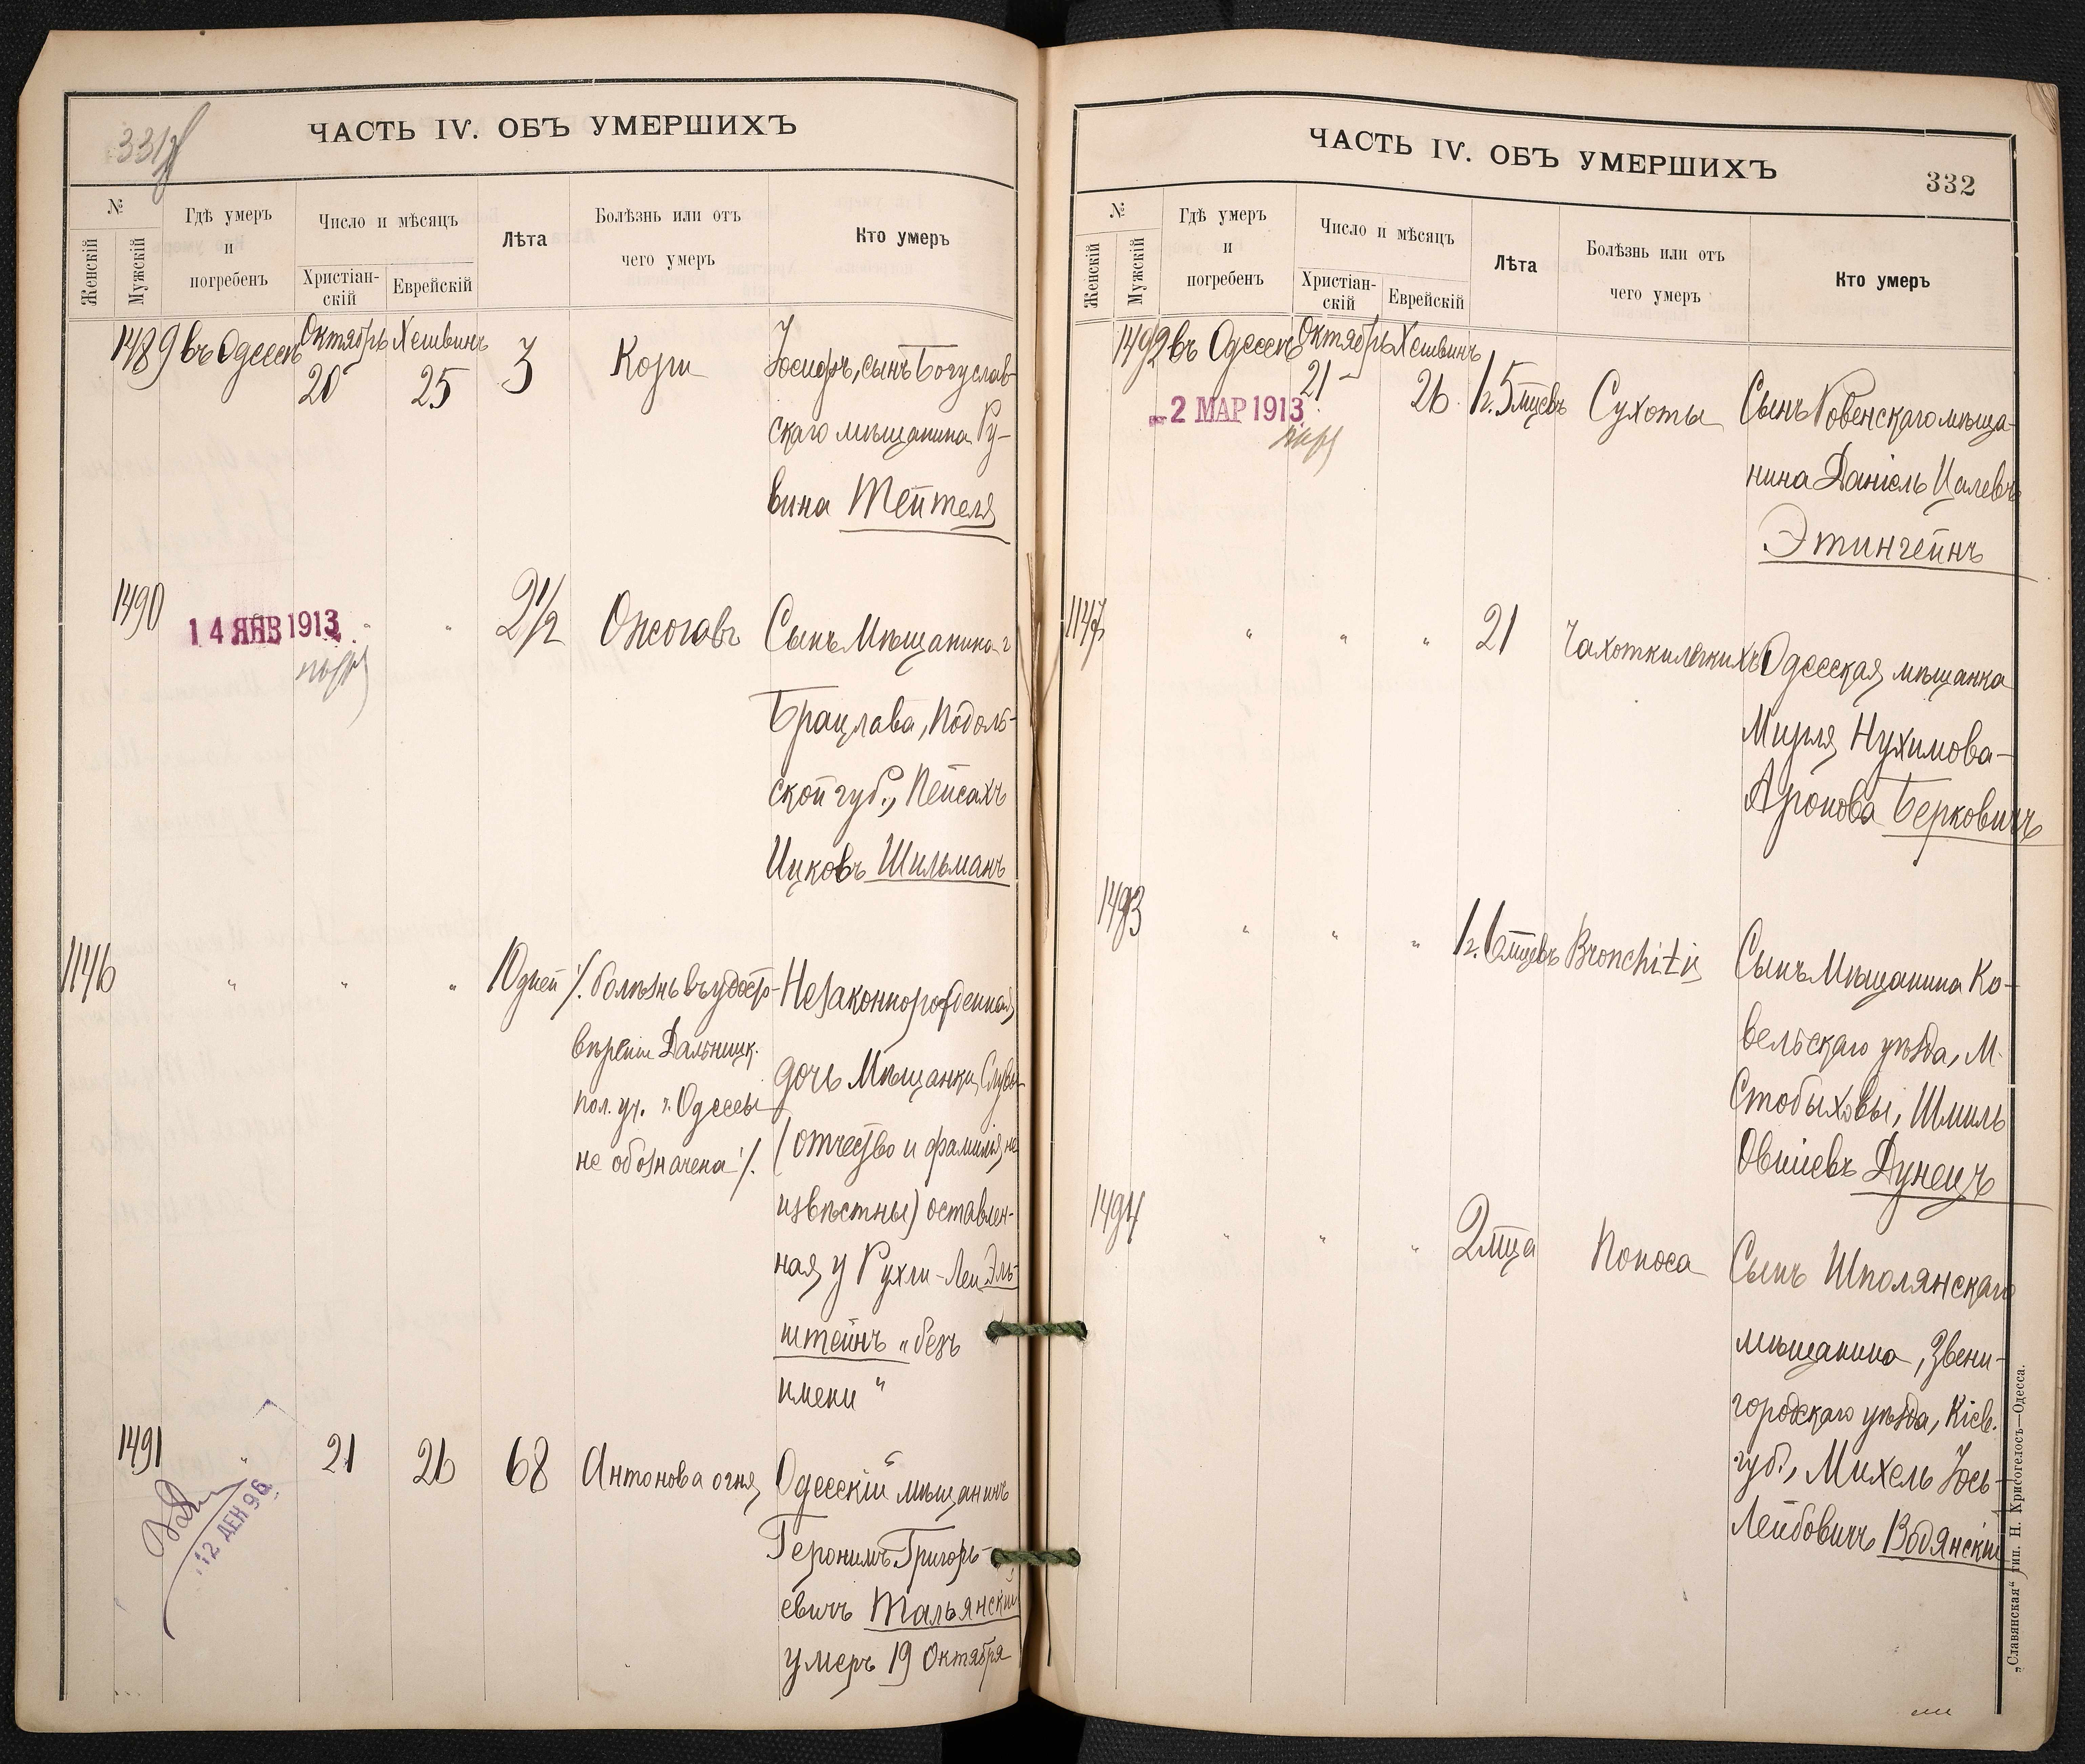 331
ЧАСТЬ IV. ОБЪ УМЕРШИХЪ
№
Женскій
Мужскій
Гдѣ умеръ
и
погребенъ
Число и мѣсяцъ
Христіан-
скій
Еврейскій
Лѣта
Болѣзнь или отъ
чего умеръ
Кто умеръ
1489 въ Одессѣ Октябрь Хешвинъ 3 Кори Іосифъ, сынъ Богуслав-
20 25
скаго мѣщанина Ру-
вина Тейтеля
1490 14 ЯНВ 1913 " " 2 1/2 Ожоговъ Сынъ Мѣщанина г
Брацлава, Подоль-
ской губ., Пейсахъ
Ицковъ Шильманъ
1146 " " " 10 дней ·/. болѣзнь въ удосто- Незаконнорожденная
вѣреніи Дальницк. дочь Мѣщанки
пол. уч. г. Одессы (отчество и фамилія не
не обозначена ·/. извѣстны) оставлен-
ная у Рухли-Леи Эль-
штейнъ „безъ
имени"
1491 " 21 26 68 Антонова огня Одесскій мѣщанинъ
12 ДЕК 96
Геронимъ Григорь-
евичъ Тальянскій
умеръ 19 Октября
ЧАСТЬ IV. ОБЪ УМЕРШИХЪ
332
№
Женскій
Мужскій
Гдѣ умеръ
и
погребенъ
Число и мѣсяцъ
Христіан-
скій
Еврейскій
Лѣта
Болѣзнь или отъ
чего умеръ
Кто умеръ
1492 въ Одессѣ Октябрь Хешвинъ
21 26 1 г. 5 мцевъ Сухоты Сынъ Ровенскаго мѣща-
2 МАР 1913
нина Даніель Цалевъ
Этингейнъ
1147 " " " 21 Чахотки легкихъ Одесская мѣщанка
Мирля Нухимова-
Аронова Берковичъ
1493 " " " 1 г. 6 мцевъ Bronchitis Сынъ Мѣщанина Ко-
вельскаго уѣзда, М.
Стобыховы, Шмиль
Овшіевъ Дунецъ
1494 " " " 2 мца Поноса Сынъ Шполянскаго
мѣщанина, Звени-
городскаго уѣзда, Кіев.
губ., Михель Іось-
Лейбовичъ Водянскій
„Славянская" тип. Н. Хрисогелосъ—Одесса.